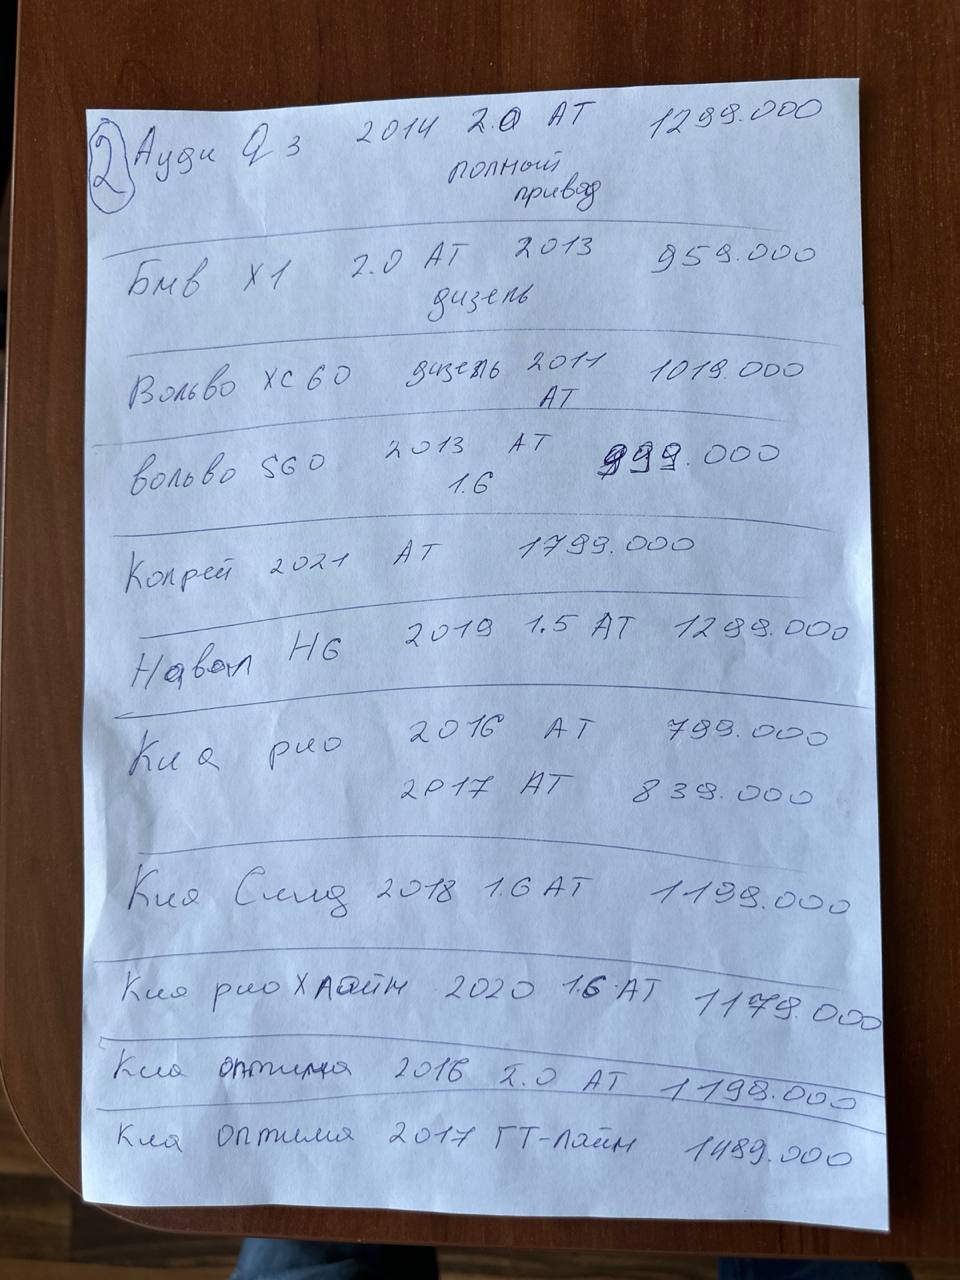 2 Ауди Q3 2014 2.0 АТ 1299.000
полный
привод
Бмв X1 2.0 АТ 2013 959.000
дизель
Вольво XC60 дизель 2011 1019.000
АТ
Вольво S60 2013 АТ 999.000
1.6
Колрей 2021 АТ 1799.000
Навал H6 2019 1.5 АТ 1299.000
Киа рио 2016 АТ 799.000
2017 АТ 839.000
Киа Сиид 2018 1.6 АТ 1199.000
Киа рио Х лайн 2020 1.6 АТ 1179.000
Киа оптима 2016 2.0 АТ 1199.000
Киа оптима 2017 ГТ-лайн 1489.000